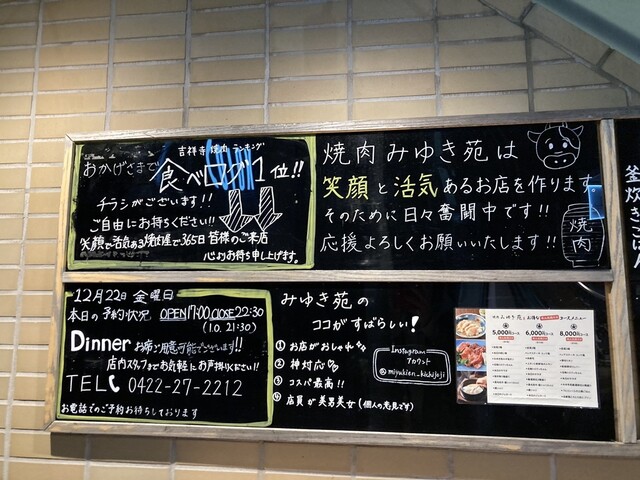 吉祥寺 焼肉 ランキング
おかげさまで
食べログ1位!!
チラシがございます!!
ご自由にお持ちください!!
笑顔で活気ある焼肉屋で365日 皆様のご来店
心よりお待ち申し上げます。
焼肉 みゆき苑は
笑顔と活気あるお店を作ります
そのために日々奮闘中です!!
応援よろしくお願いいたします!!
焼肉
12月22日 金曜日
本日の予約状況 OPEN17:00 CLOSE22:30
(L.O. 21:30)
Dinner お席ご用意可能でございます!!
店内スタッフまでお気軽にお声掛けください!!
TEL 0422-27-2212
お電話でのご予約お待ちしております
みゆき苑の
ココがすばらしい!
① お店がおしゃれ
② 神対応
③ コスパ最高!!
④ 店員が美男美女(個人の意見です)
Instagram
アカウント
@miyukien_kichijoji
5,000円コース
6,000円コース
8,000円コース
釜炊きごはん